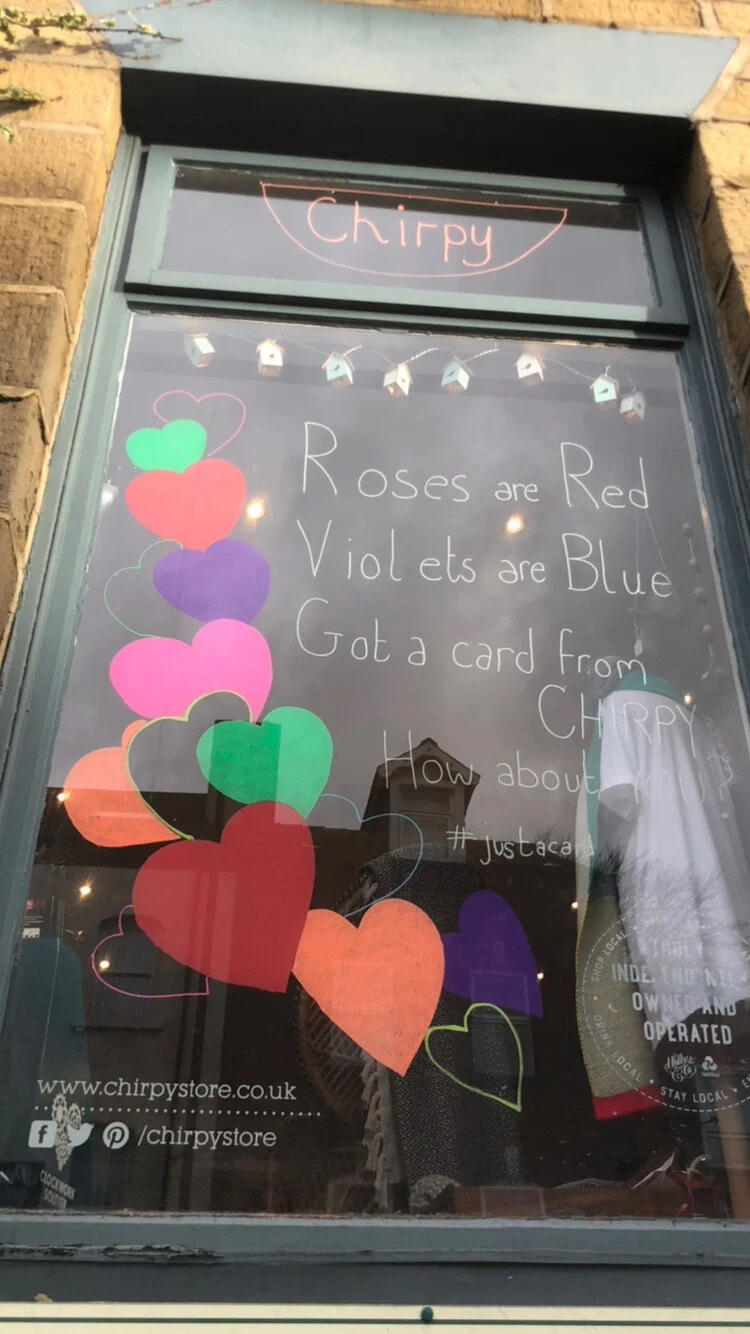 Chirpy
Roses are Red
Violets are Blue
Got a card from
CHIRPY
How about you?
#justacard
SHOP LOCAL
TRULY
INDEPENDENTLY
OWNED AND
OPERATED
STAY LOCAL
www.chirpystore.co.uk
/chirpystore
CLOCKWORK